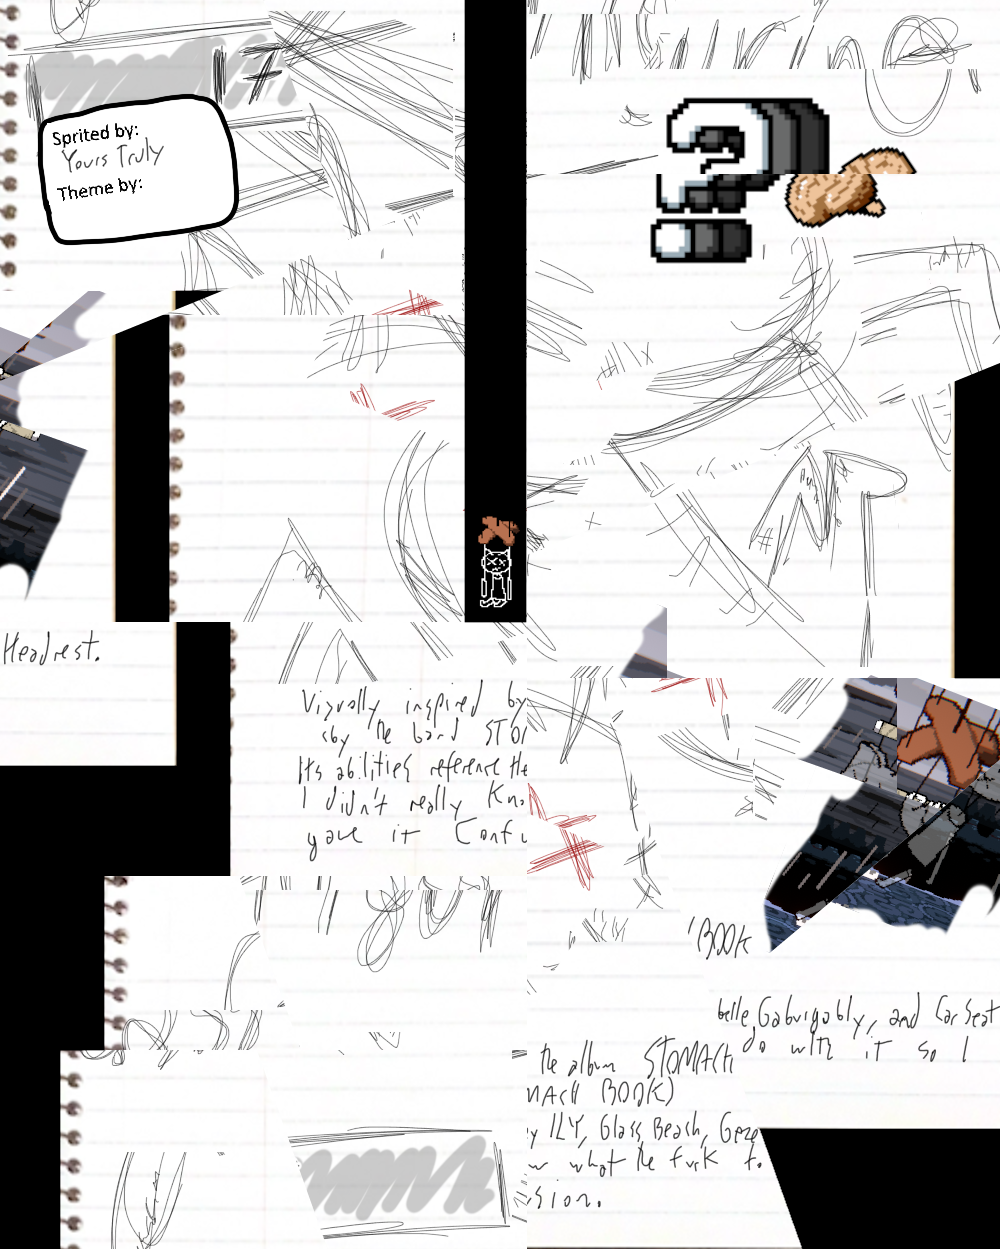 Sprited by:
Yours Truly
Theme by:
?
Headrest.
Visually inspired by
sby the band STO
Its abilities reference the
I didn't really Kno
gave it Confu
'BOOK
belle, Gaburgably, and Car Seat
do with it so I
the album STOMACH
MACH BOOK)
y ILY, Glass Beach, Geze
w what the fuck to
sion.